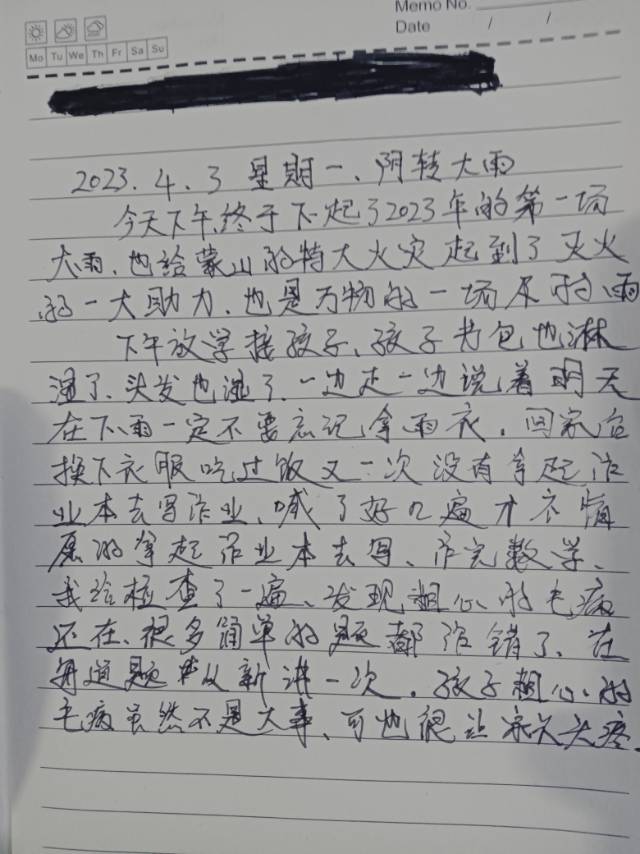 Memo No.
Date / /
Mo Tu We Th Fr Sa Su
2023.4.3 星期一、阴转大雨
今天下午终于下起了2023年的第一场
大雨、也给蒙山的特大火灾起到了灭火
的一大助力、也是万物的一场及时雨
下午放学接孩子、孩子书包也淋
湿了、头发也湿了、一边走一边说着明天
在下雨一定不要忘记拿雨衣。回家后
换下衣服吃过饭又一次没有拿起作
业本去写作业、喊了好几遍才不情
愿的拿起作业本去写、作完数学、
我给检查了一遍、发现粗心的毛病
还在、很多简单的题都做错了、在
每道题从新讲一次。孩子粗心的
毛病虽然不是大事、可也很让家长头疼。